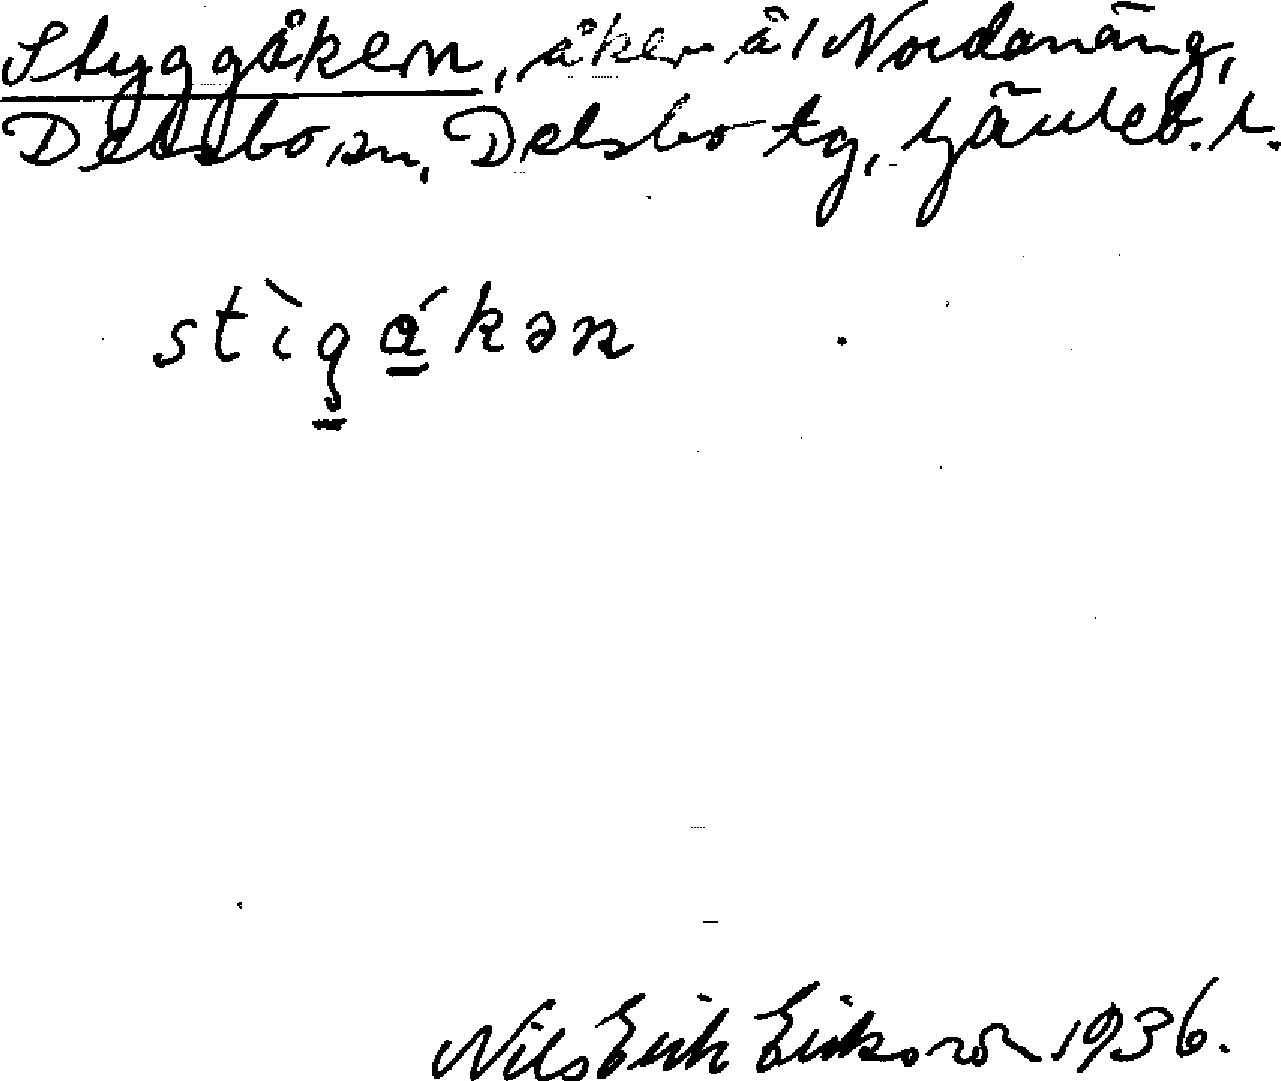 Styggåkern, åker å 1 Nordanäng,
Delsbo sn, Delsbo tg, Gävleb. l.
stìgåkən
Nils Erik Eriksson 1936.